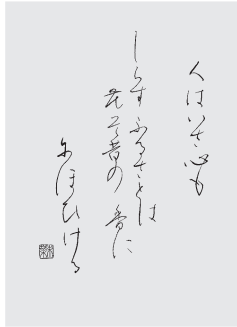 人はいさ心も
しらずふるさとは
花ぞ昔の香に
にほひける